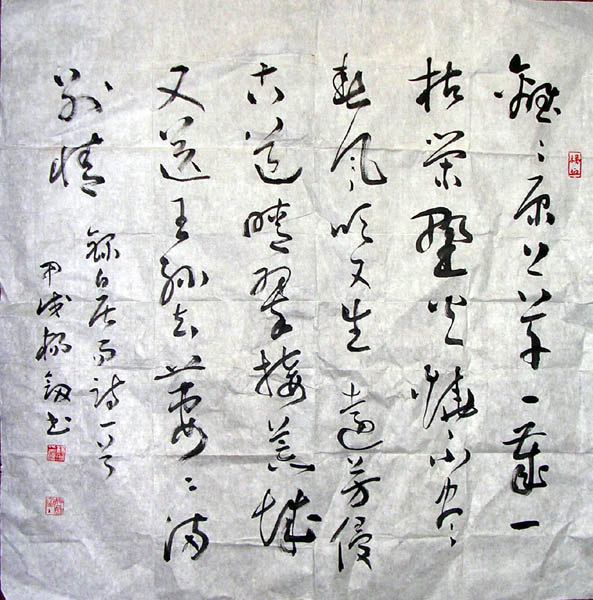 離〻原上草一歲一
枯榮野火燒不盡
春風吹又生遠芳侵
古道晴翠接荒城
又送王孫去萋〻滿
別情
錄白居易詩一首
甲戌楊劍書